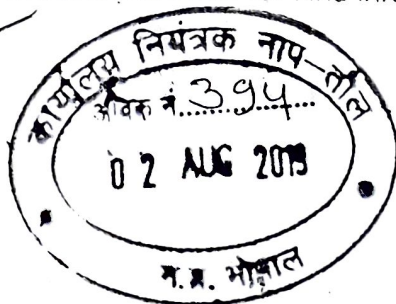 कार्यालय नियंत्रक नाप-तौल
आवक नं.........394....
02 AUG 2019
म.प्र. भोपाल